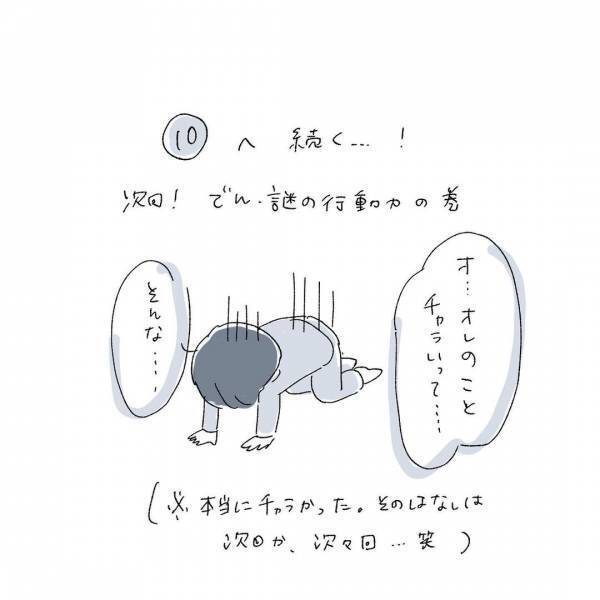 10 へ 続く…!
次回! でん・謎の行動力の巻
オ…オレのこと
チャラいって……
そんな……、
(※本当にチャラかった。そのはなしは
次回か、次々回…笑)